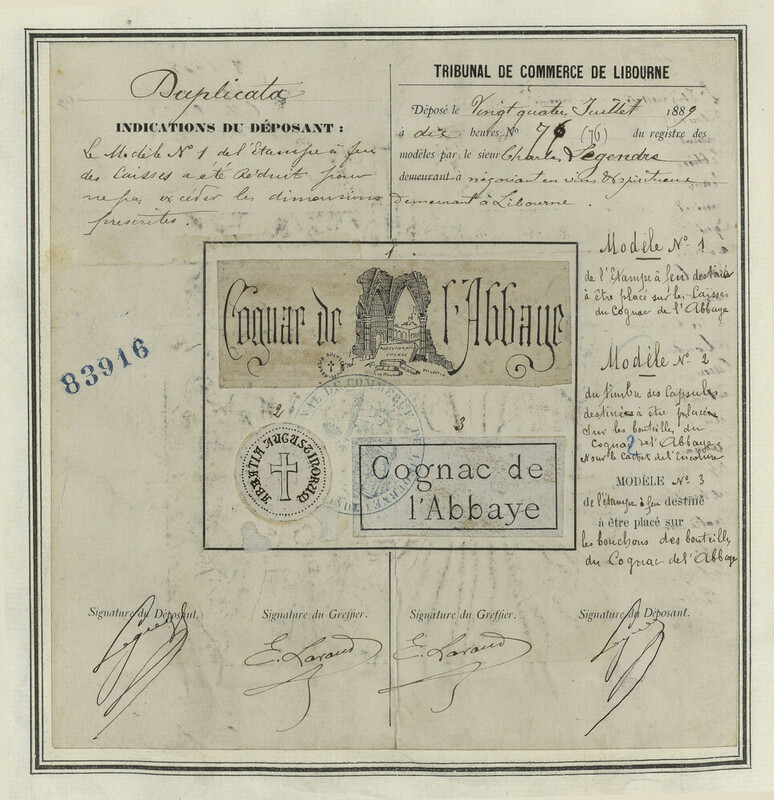 Duplicata
INDICATIONS DU DÉPOSANT :
Le Modèle Nº 1 de l'Etampe à feu
des Caisses a été réduit pour
ne pas excéder les dimensions
prescrites.
TRIBUNAL DE COMMERCE DE LIBOURNE
Déposé le Vingt quatre Juillet 1889
à dix heures Nº 76 (76) du registre des
modèles par le sieur Charles Legendre
demeurant à négociant en vins & spiritueux
demeurant à Libourne.
83916
1
Cognac de l'Abbaye
2
ABBATIA AUGUSTINORUM
3
Cognac de
l'Abbaye
Modèle Nº 1
de l'Etampe à feu destinée
à être placé sur les Caisses
du Cognac de l'Abbaye
Modèle Nº 2
du timbre des Capsules
destinées à être placées
sur les bouteilles du
Cognac de l'Abbaye
MODÈLE Nº 3
de l'étampe à feu destiné
à être placé sur
les bouchons des bouteilles
du Cognac de l'Abbaye
Signature du Déposant.
Signature du Greffier.
Signature du Greffier.
Signature du Déposant.
E. Lavaud
E. Lavaud